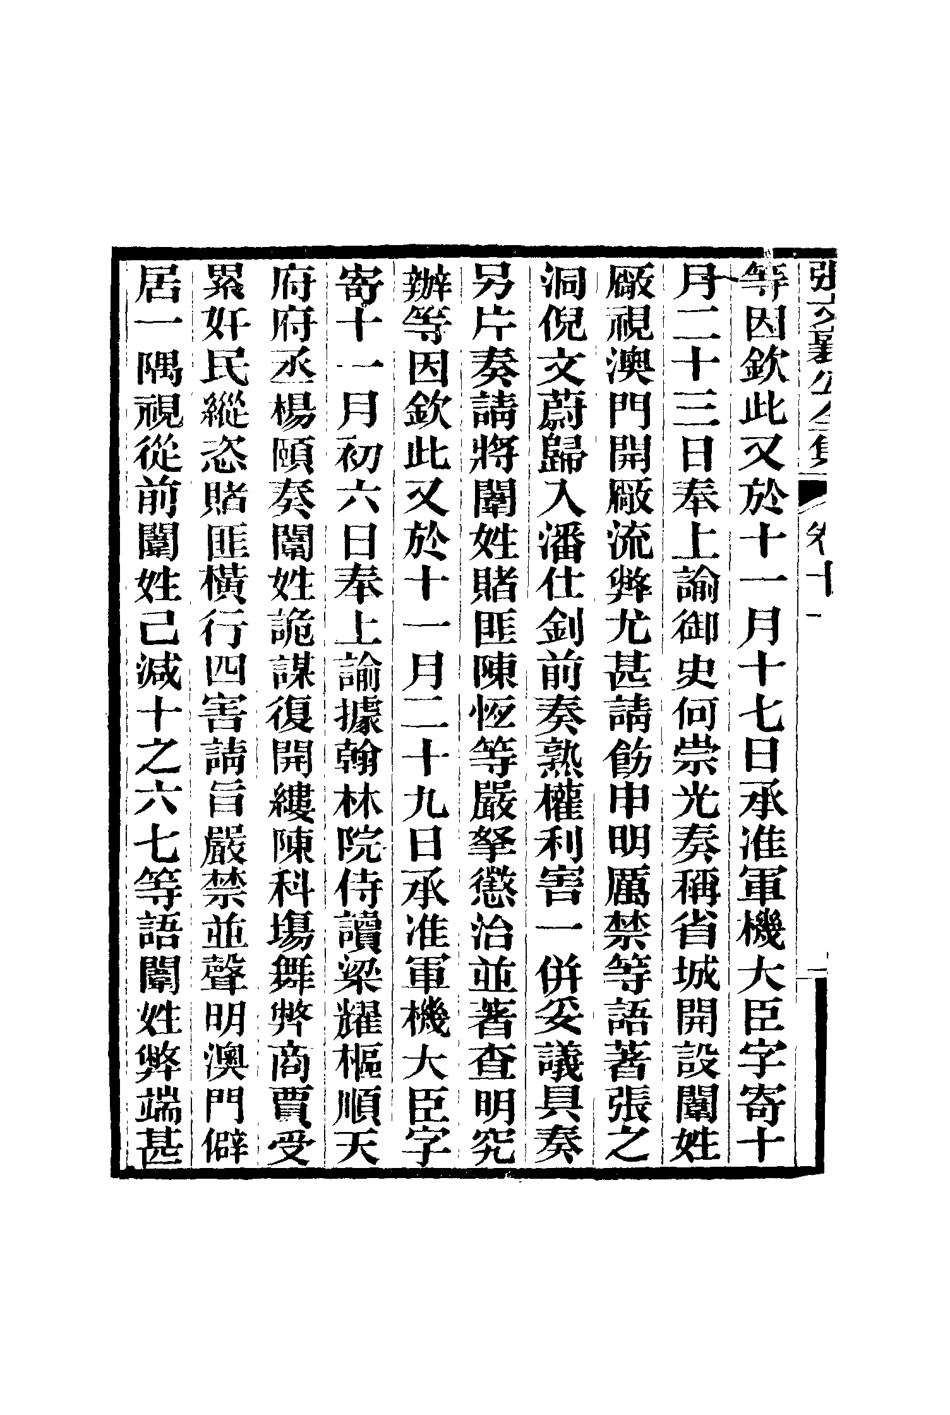 張文襄公全集 卷十一
等因欽此又於十一月十七日承准軍機大臣字寄十
一月二十三日奉上諭御史何崇光奏稱省城開設闈姓
廠視澳門開廠流弊尤甚請飭申明厲禁等語著張之
洞倪文蔚歸入潘仕釗前奏熟權利害一併妥議具奏
另片奏請將闈姓賭匪陳恆等嚴拏懲治並著查明究
辦等因欽此又於十一月二十九日承准軍機大臣字
寄十一月初六日奉上諭據翰林院侍讀梁耀樞順天
府府丞楊頤奏闈姓詭謀復開縷陳科場舞弊商賈受
累奸民縱恣賭匪橫行四害請旨嚴禁並聲明澳門僻
居一隅視從前闈姓已減十之六七等語闈姓弊端甚